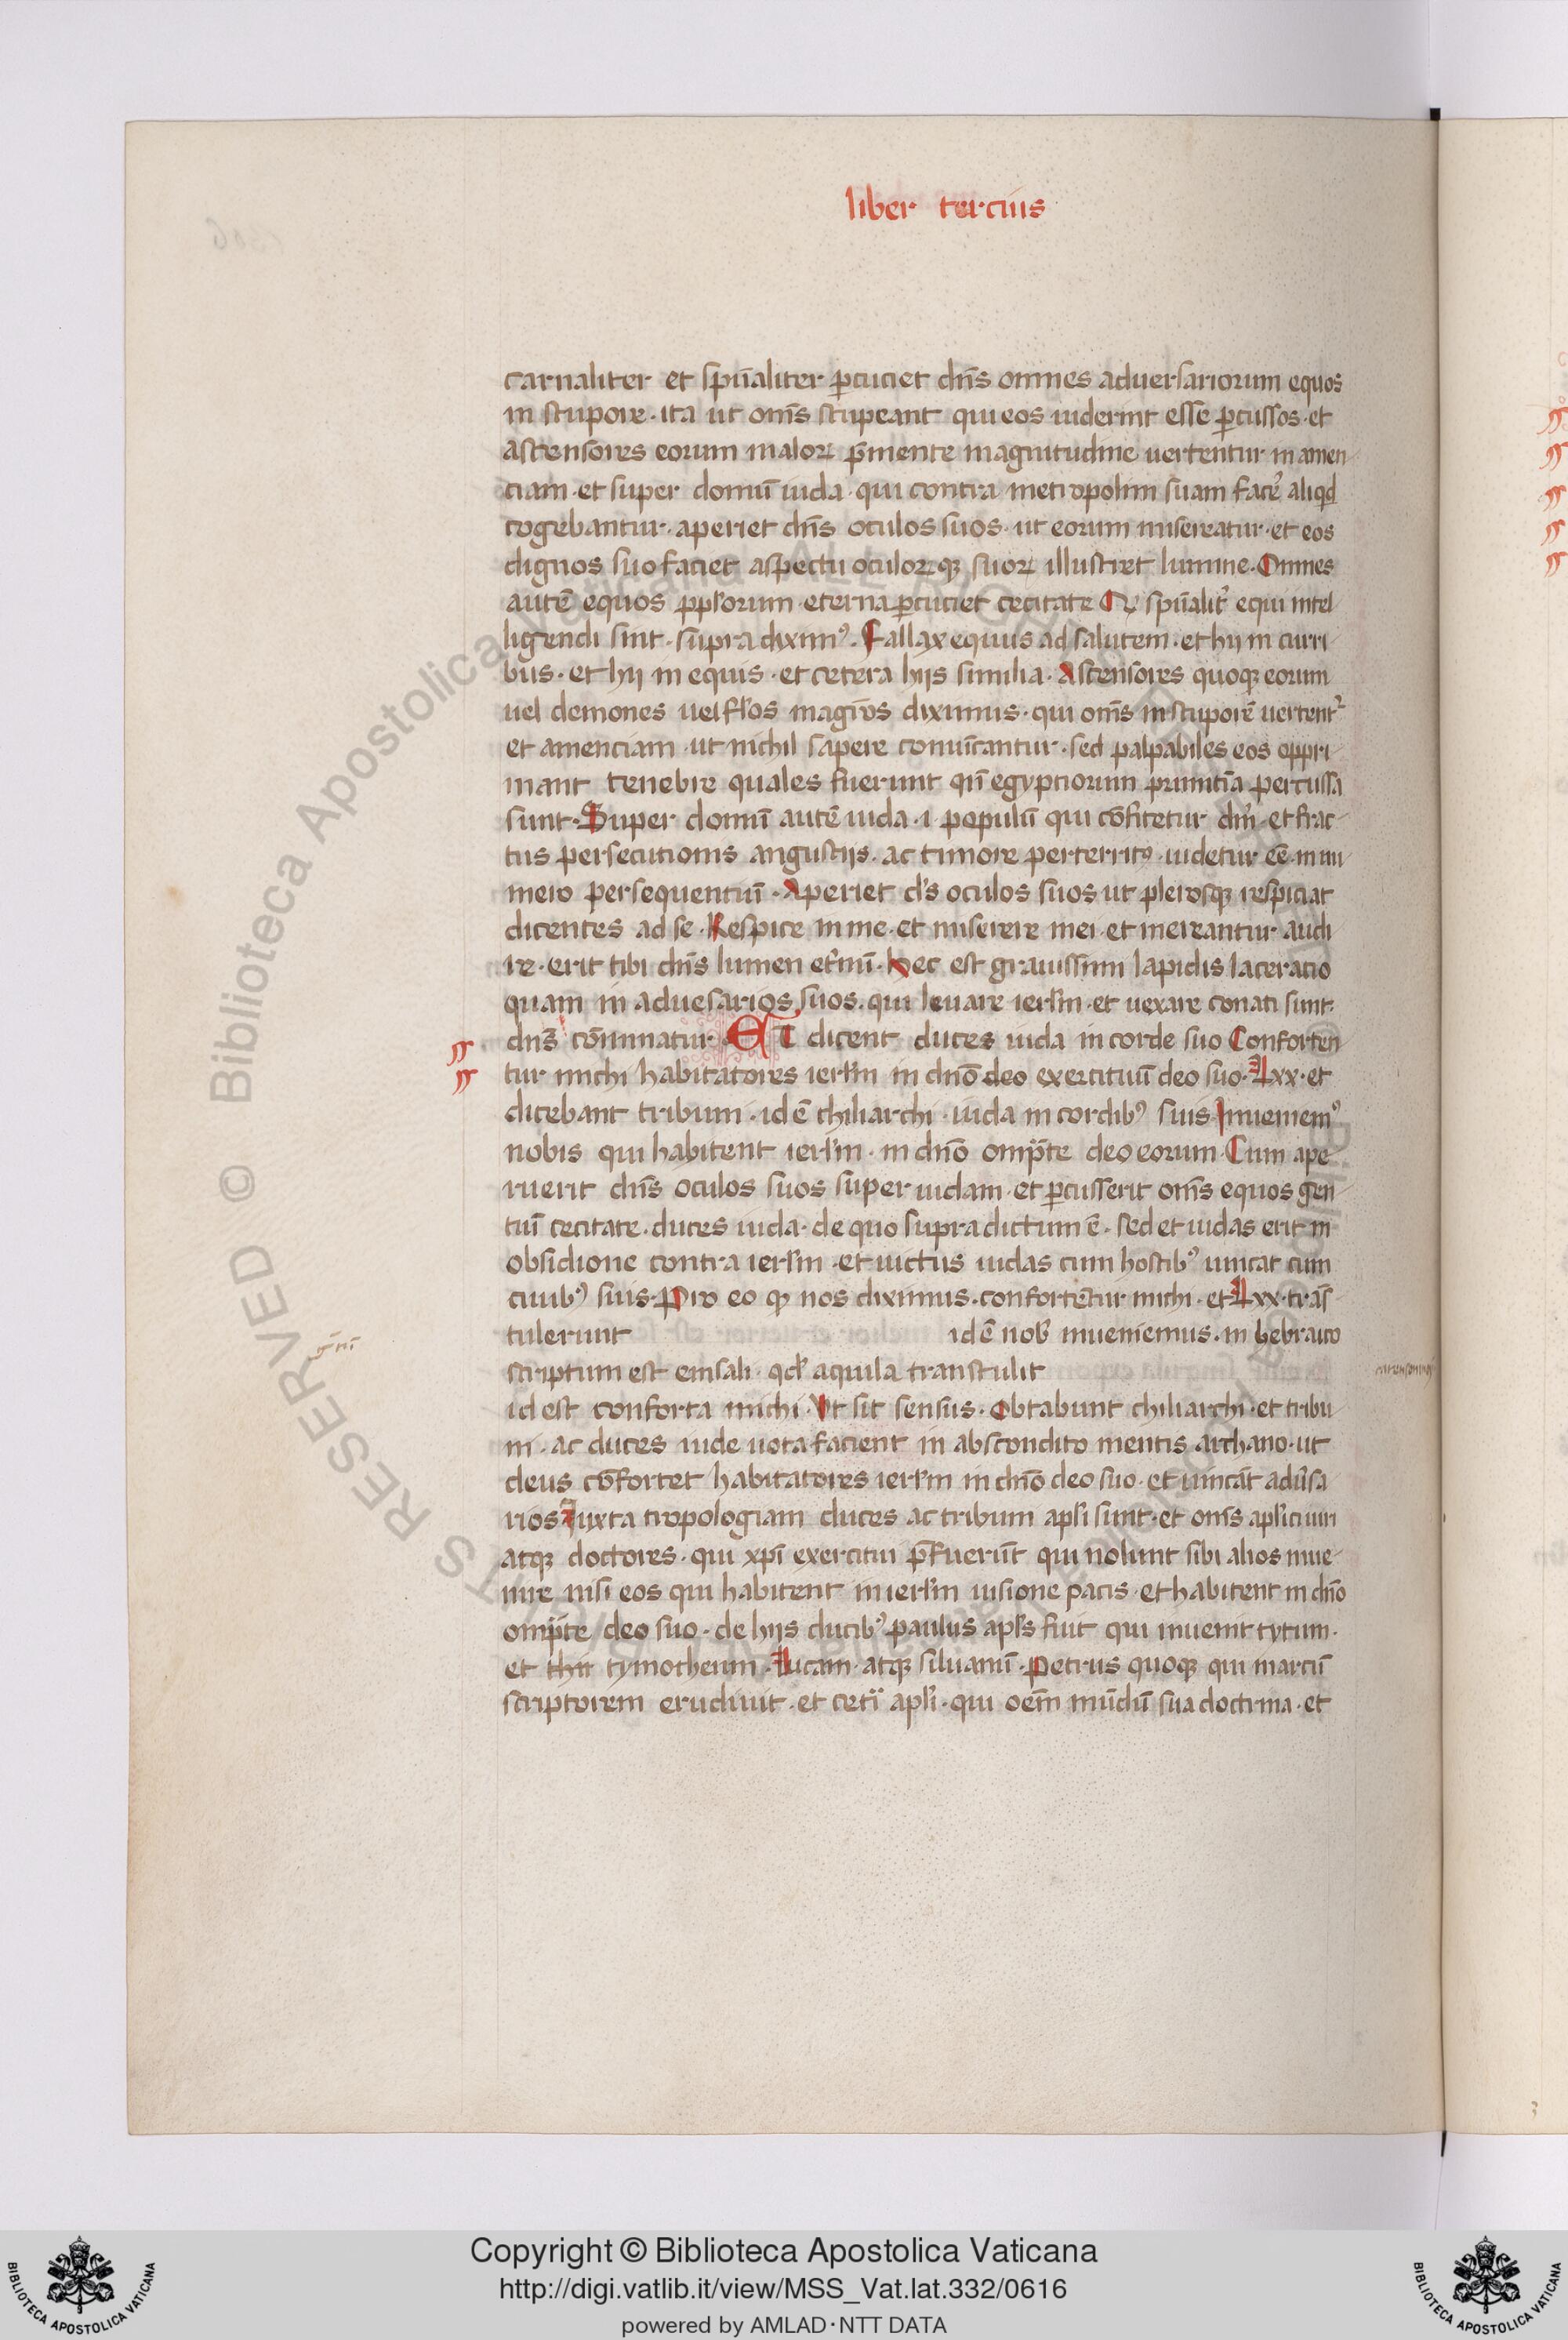 liber tercius
carnaliter et sp̄ualiter ꝑcuciet dn̄s omnes aduersariorum equos
in stupore · ita ut om̄s stupeant qui eos uiderint esse ꝑcussos · et
ascensores eorum maloꝝ p̄mente magnitudine uertentur in amen
ciam · et super domū iuda · qui contra metropolim suam facē aliqd
cogebantur · aperiet dn̄s oculos suos · ut eorum misereatur · et eos
dignos suo faciet aspectu oculoꝝ qꝫ suoꝝ illustret lumine · Omnes
autē equos ꝓpl'orum · eterna ꝑcuciet cecitate sp̄ualit' equi intel
ligendi sint · supra dixim⁹ · Fallax equus ad salutem · et hij in curri
bus · et hij in equis · et cetera hijs similia · Ascensores quoqꝫ eorum
uel demones uel fl'os magr̄os diximus · qui om̄s in stuporē uertent'
et amenciam · ut nichil sapere conuīcantur · sed palpabiles eos oppri
mant tenebre quales fuerunt qn̄ egypciorum primitīa percussa
sunt · Super domū autē iuda · i · populū qui cōfitetur dn̄m · et frac
tus persecutionis angustijs · ac timore perterrit⁹ · uidetur eē · in nu
mero persequentiū · Aperiet d's oculos suos ut plerosqꝫ respiciat
dicentes ad se · Respice in me · et miserere mei · et mereantur audi
re · erit tibi dn̄s lumen et'nū · Hec est grauissimi lapidis laceratio
quam in aduesarios suos · qui leuare ierl'm · et uexare conati sunt ·
dn̄s cōminatur · ET dicent duces iuda in corde suo Conforten
tur michi habitatores ierl'm in dn̄o deo exercituū deo suo · Lxx · et
dicebant tribuni · id ē chiliarchi · iuda in cordib⁹ suis · Inueniem⁹
nobis qui habitent ierl'm · in dn̄o omp̄te deo eorum · Cum ape
ruerit dn̄s oculos suos super iudam · et ꝑcusserit om̄s equos gen
tiū cecitate · duces iuda · de quo supra dictum ē · sed et iudas erit in
obsidione contra ierl'm · et uictus iudas cum hostib⁹ uincat cum
ciuib⁹ suis · Pro eo qꝫ nos diximus · confortētur michi · et Lxx · trās
tulerunt id ē nob' inueniemus · in hebraico
scriptum est emsali · qd' aquila transtulit
id est conforta michi · Ut sit sensus · Obtabunt chiliarchi · et tribu
ni · ac duces iude uota facient in abscondito mentis archano · ut
deus cōfortet habitatores ierl'm in dn̄o deo suo · et uincāt adu'sa
rios Iuxta tropologiam duces ac tribuni apl'i sunt · et om̄s apl'ici uiri
atqꝫ doctores · qui xp̄i exercitui p̄fuerūt qui nolunt sibi alios inue
nire nisi eos qui habitent in ierl'm uisione pacis · et habitent in dn̄o
omp̄te deo suo · de hijs ducib⁹ paulus apl's fuit qui inuenit tytum ·
et thit tymotheum · Lucam · atqꝫ siluanū · Petrus quoqꝫ qui marcū
scriptorem erudiuit · et cet'i apl'i · qui oēm mūdū sua doctrina · et
Copyright © Biblioteca Apostolica Vaticana
http://digi.vatlib.it/view/MSS_Vat.lat.332/0616
powered by AMLAD·NTT DATA
BIBLIOTECA APOSTOLICA VATICANA
BIBLIOTECA APOSTOLICA VATICANA